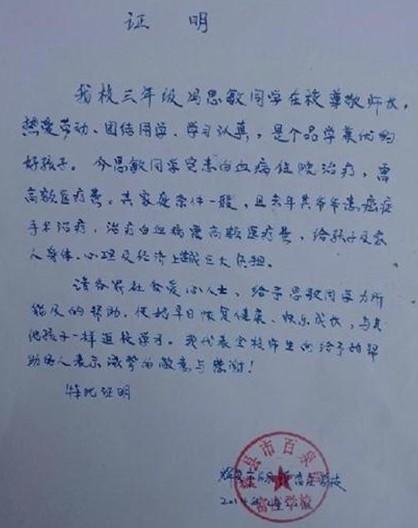 证 明
我校三年级冯思敏同学在校尊敬师长,
热爱劳动、团结同学、学习认真,是个品学兼优的
好孩子。今思敏同学突患白血病住院治疗,需
高额医疗费。其家庭条件一般,且去年其爷爷患癌症
手术治疗,治疗白血病需高额医疗费,给孩子及家
人身体、心理及经济上造成巨大负担。
请各界社会爱心人士、给予思敏同学力所
能及的帮助,使她早日恢复健康、快乐成长,与其
他孩子一样返校学习。我代表全校师生向给予的帮
助的人表示诚挚的敬意与感谢!
特此证明
县市百泉
学校